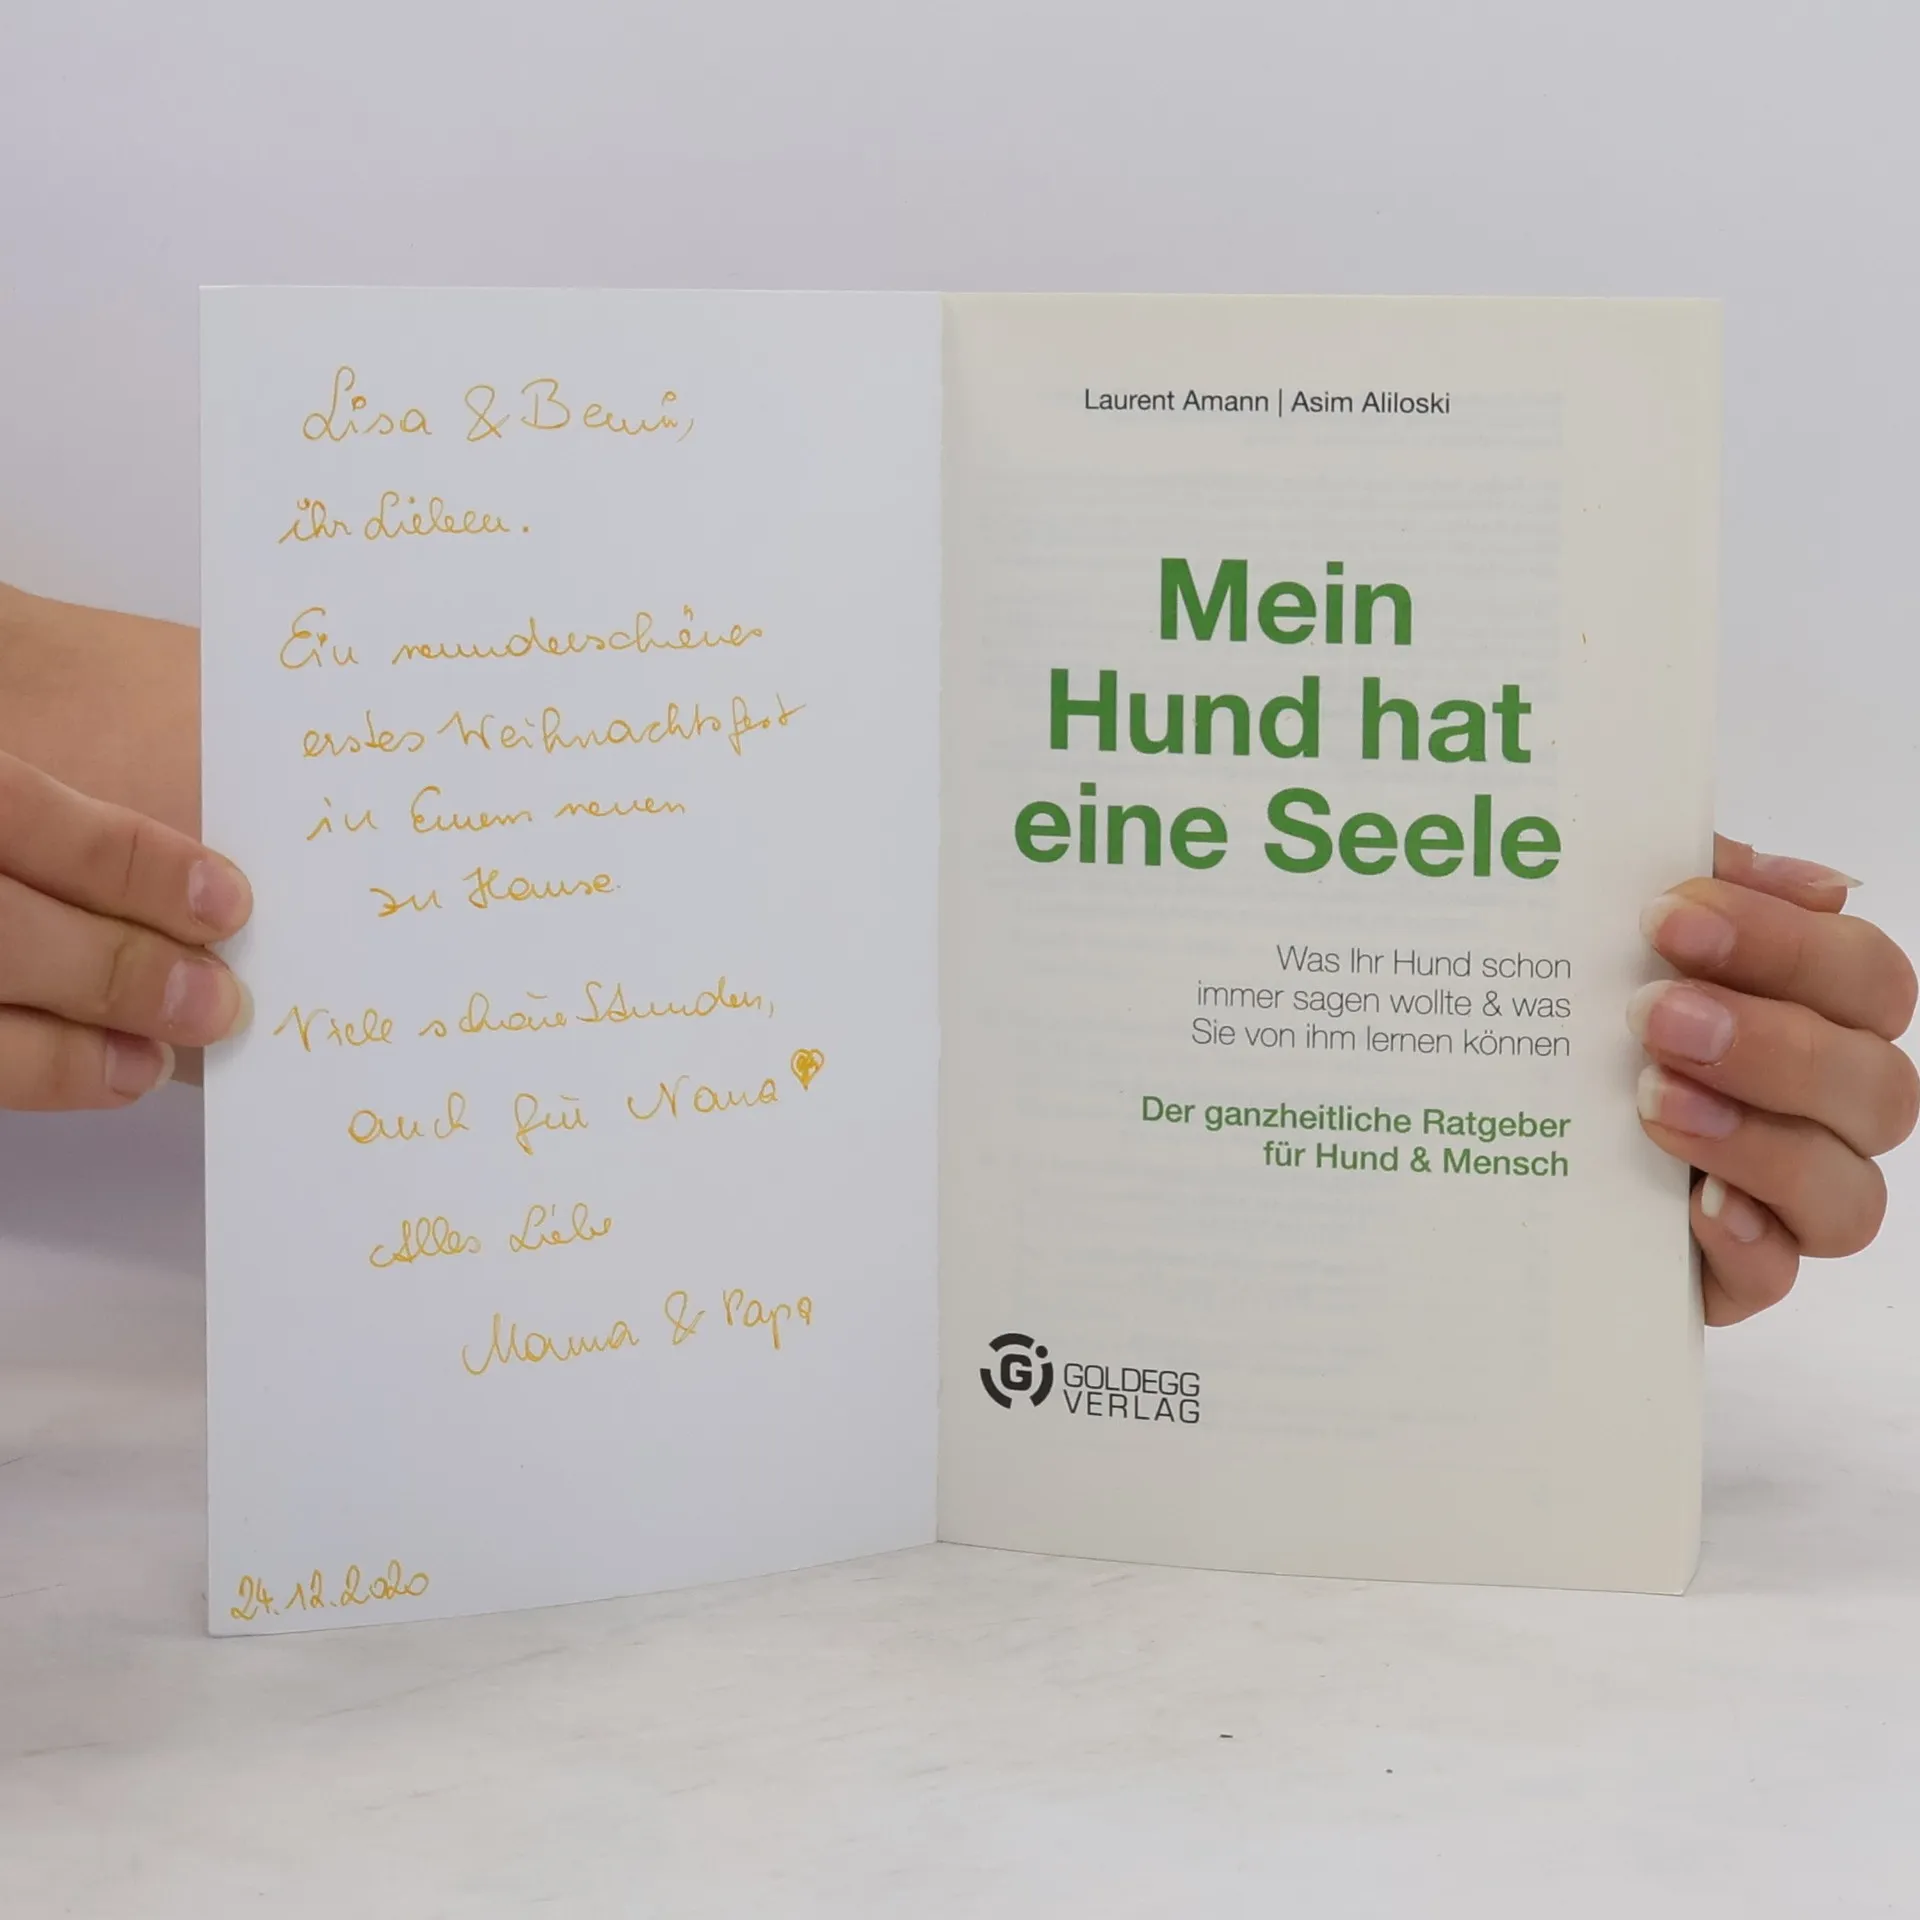 Lisa & Benni,
ihr Lieben.
Ein wunderschönes
erstes Weihnachtsfest
in Eurem neuen
zu Hause.
Viele schöne Stunden,
auch für Nana
Alles Liebe
Mama & Papa
24.12.2020
Laurent Amann | Asim Aliloski
Mein
Hund hat
eine Seele
Was Ihr Hund schon
immer sagen wollte & was
Sie von ihm lernen können
Der ganzheitliche Ratgeber
für Hund & Mensch
G GOLDEGG
VERLAG